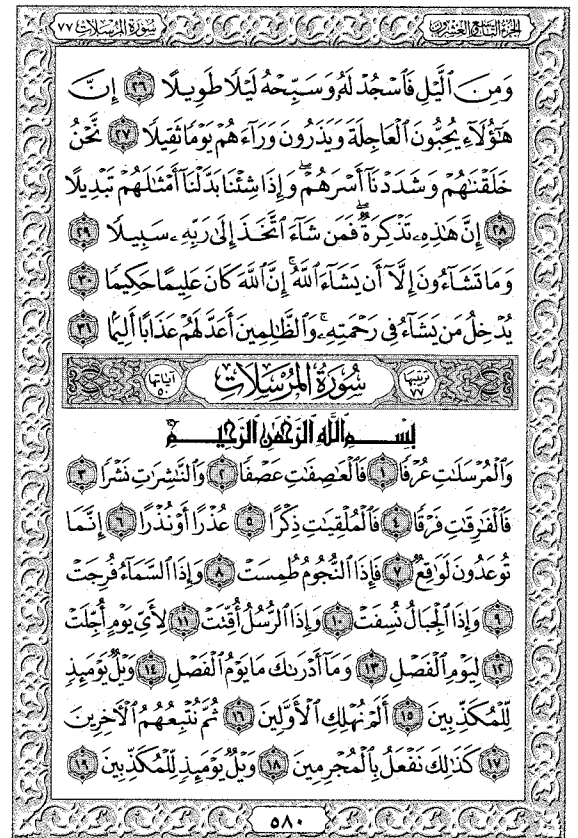 الجزء التاسع والعشرون سورة المرسلات ٧٧
وَمِنَ ٱلَّيْلِ فَٱسْجُدْ لَهُۥ وَسَبِّحْهُ لَيْلًا طَوِيلًا ٢٦ إِنَّ
هَٰٓؤُلَآءِ يُحِبُّونَ ٱلْعَاجِلَةَ وَيَذَرُونَ وَرَآءَهُمْ يَوْمًا ثَقِيلًا ٢٧ نَّحْنُ
خَلَقْنَٰهُمْ وَشَدَدْنَآ أَسْرَهُمْ ۖ وَإِذَا شِئْنَا بَدَّلْنَآ أَمْثَٰلَهُمْ تَبْدِيلًا
٢٨ إِنَّ هَٰذِهِۦ تَذْكِرَةٌ ۖ فَمَن شَآءَ ٱتَّخَذَ إِلَىٰ رَبِّهِۦ سَبِيلًا ٢٩
وَمَا تَشَآءُونَ إِلَّآ أَن يَشَآءَ ٱللَّهُ ۚ إِنَّ ٱللَّهَ كَانَ عَلِيمًا حَكِيمًا ٣٠
يُدْخِلُ مَن يَشَآءُ فِى رَحْمَتِهِۦ ۚ وَٱلظَّٰلِمِينَ أَعَدَّ لَهُمْ عَذَابًا أَلِيمًۢا ٣١
ترتيبها ٧٧ سُورَةُ المُرْسَلَاتِ آياتها ٥٠
بِسْمِ ٱللَّهِ ٱلرَّحْمَٰنِ ٱلرَّحِيمِ
وَٱلْمُرْسَلَٰتِ عُرْفًا ١ فَٱلْعَٰصِفَٰتِ عَصْفًا ٢ وَٱلنَّٰشِرَٰتِ نَشْرًا ٣
فَٱلْفَٰرِقَٰتِ فَرْقًا ٤ فَٱلْمُلْقِيَٰتِ ذِكْرًا ٥ عُذْرًا أَوْ نُذْرًا ٦ إِنَّمَا
تُوعَدُونَ لَوَٰقِعٌ ٧ فَإِذَا ٱلنُّجُومُ طُمِسَتْ ٨ وَإِذَا ٱلسَّمَآءُ فُرِجَتْ
٩ وَإِذَا ٱلْجِبَالُ نُسِفَتْ ١٠ وَإِذَا ٱلرُّسُلُ أُقِّتَتْ ١١ لِأَىِّ يَوْمٍ أُجِّلَتْ
١٢ لِيَوْمِ ٱلْفَصْلِ ١٣ وَمَآ أَدْرَىٰكَ مَا يَوْمُ ٱلْفَصْلِ ١٤ وَيْلٌ يَوْمَئِذٍ
لِّلْمُكَذِّبِينَ ١٥ أَلَمْ نُهْلِكِ ٱلْأَوَّلِينَ ١٦ ثُمَّ نُتْبِعُهُمُ ٱلْءَاخِرِينَ
١٧ كَذَٰلِكَ نَفْعَلُ بِٱلْمُجْرِمِينَ ١٨ وَيْلٌ يَوْمَئِذٍ لِّلْمُكَذِّبِينَ ١٩
٥٨٠